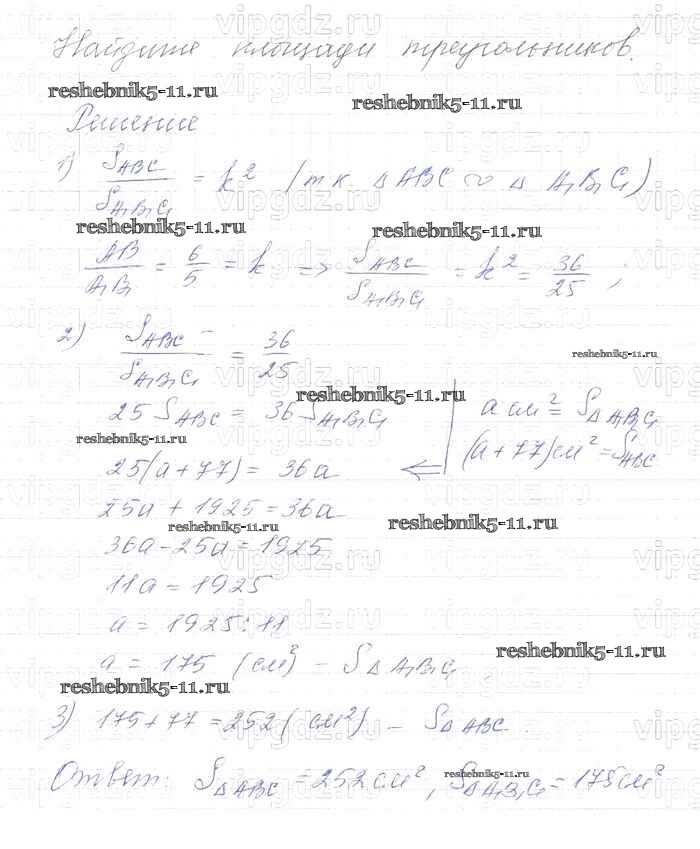 Найдите площади треугольников.
reshebnik5-11.ru reshebnik5-11.ru
Решение
1) S_ABC / S_A₁B₁C₁ = k² (т.к. △ABC ∾ △A₁B₁C₁)
reshebnik5-11.ru reshebnik5-11.ru
AB / A₁B₁ = 6/5 = k => S_ABC / S_A₁B₁C₁ = k² = 36/25 ;
2) S_ABC / S_A₁B₁C₁ = 36/25
reshebnik5-11.ru
reshebnik5-11.ru
25 S_ABC = 36 S_A₁B₁C₁ | a см² = S_△A₁B₁C₁
reshebnik5-11.ru
25(a+77) = 36a <= | (a+77) см² = S_ABC
25a + 1925 = 36a
reshebnik5-11.ru reshebnik5-11.ru
36a - 25a = 1925
11a = 1925
a = 1925 : 11
a = 175 (см²) - S_△A₁B₁C₁
reshebnik5-11.ru
reshebnik5-11.ru
3) 175+77 = 252 (см²) - S_△ABC.
Ответ: S_△ABC = 252 см², S_△A₁B₁C₁ = 175 см²
reshebnik5-11.ru
vipgdz.ru